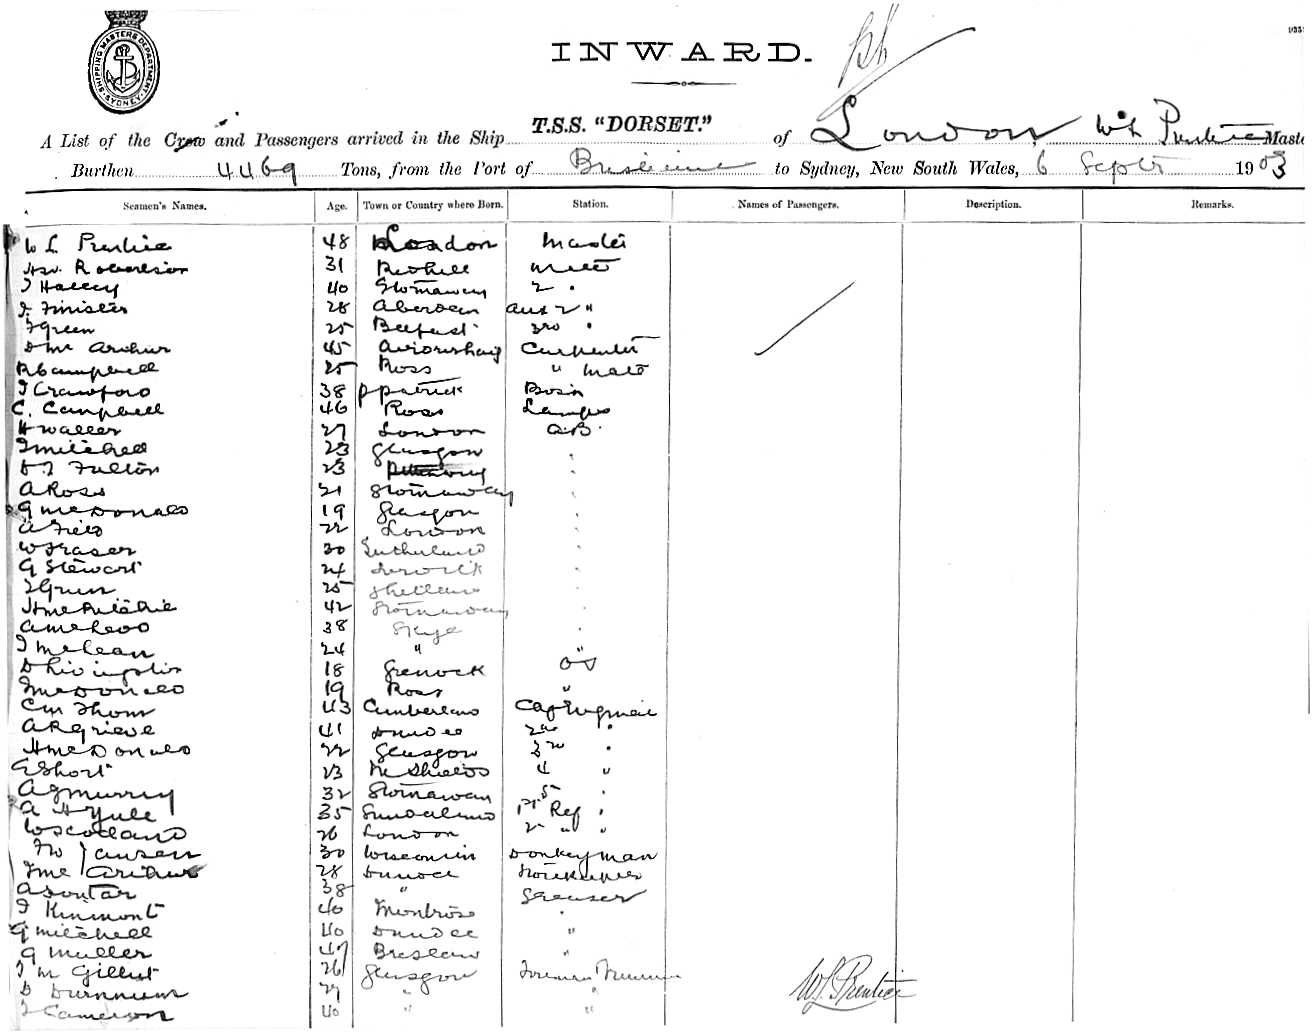 SHIPPING MASTERS DEPARTMENT SYDNEY
INWARD.
A List of the Crew and Passengers arrived in the Ship T.S.S. "DORSET." of London, W L Prentice Maste
Burthen 4469 Tons, from the Port of Brisbane to Sydney, New South Wales, 6 Septr 1903
Seamen's Names. Age. Town or Country where Born. Station. Names of Passengers. Description. Remarks.
W L Prentice 48 London Master
Robertson 31 Redhill Mate
J Halley 40 Stornaway 2 "
28 Aberdeen Aux 2 "
J Green 25 Belfast 3rd "
D Mc Arthur 45 Carpenter
R Campbell 25 Ross " Mate
J Crawford 38 Bosn
C. Campbell 46 Ross Lamps
H Waller 27 London A.B.
J Mitchell 23 Glasgow "
D J Fulton 23
A Ross 21 Stornaway "
G McDonald 19 Glasgow "
A Field 22 London "
W Fraser 30 Sutherland "
G Stewart 24 Lerwick "
J Grun 25 Shetland "
H McRitchie 42 Stornaway "
A McLeod 38 Skye "
J McLean 24 " "
D Livingston 18 Greenock OS
J McDonald 19 Ross "
C M Thom 43 Cumberland
A R Grieve 41 Dundee 2nd "
H McDonald 22 Glasgow 3rd "
G Short 23 N Shields 4 "
A G Murray 32 Stornaway 5 "
A H Yule 35 Sunderland 1st Ref "
W Scotland 26 London 2 " "
F W Jansen 30 Wisconsin Donkeyman
J Mc Arthur 28 Dundee Storekeeper
A Soutar 38 " Greaser
J Kinmont 40 Montrose "
G Mitchell 40 Dundee "
G Muller 47 Breslau "
J M Gillert 26 Glasgow Fireman Trimmer
D 27 " "
J Cameron 40 " "
W L Prentice